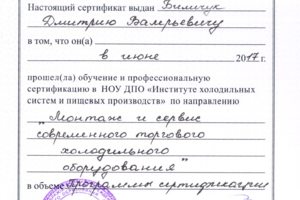 Настоящий сертификат выдан Бимчук
Дмитрию Валерьевичу
в том, что он(а)
в июне 2017 г.
прошел(ла) обучение и профессиональную
сертификацию в НОУ ДПО «Институте холодильных
систем и пищевых производств» по направлению
„Монтаж и сервис
современного торгового
холодильного
оборудования"
в объеме Программы сертификации